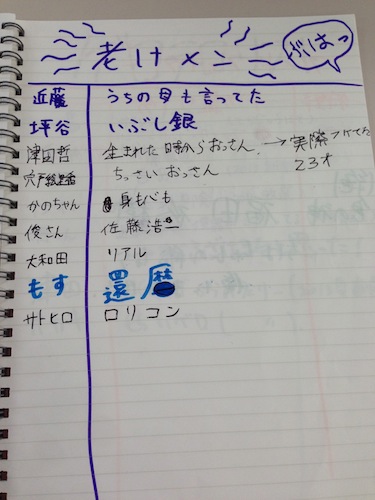 老けメン
ぶはっ
近藤 うちの母も言ってた
坪谷 いぶし銀
津田哲 生まれた時からおっさん → 実際フケてた
23才
ちっさいおっさん
かのちゃん 身も心も
俊さん 佐藤浩一
大和田 リアル
もす 還暦
サトヒロ ロリコン